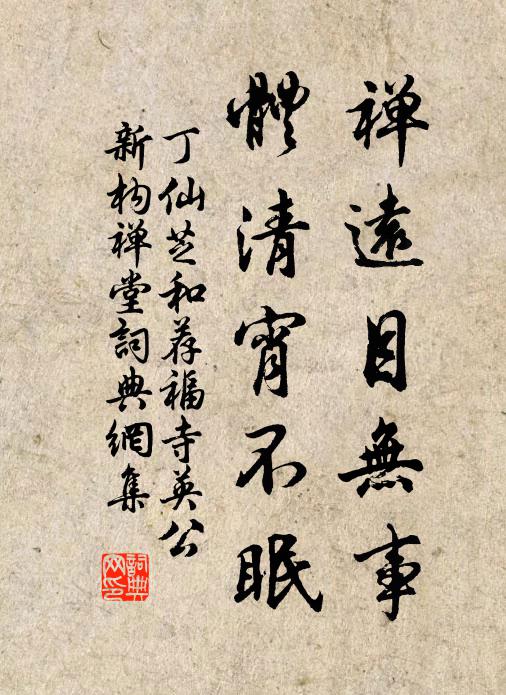 禅遠目無事
體清宵不眠
丁仙芝和荐福寺英公
新构禅堂詞典網集
詞典網印